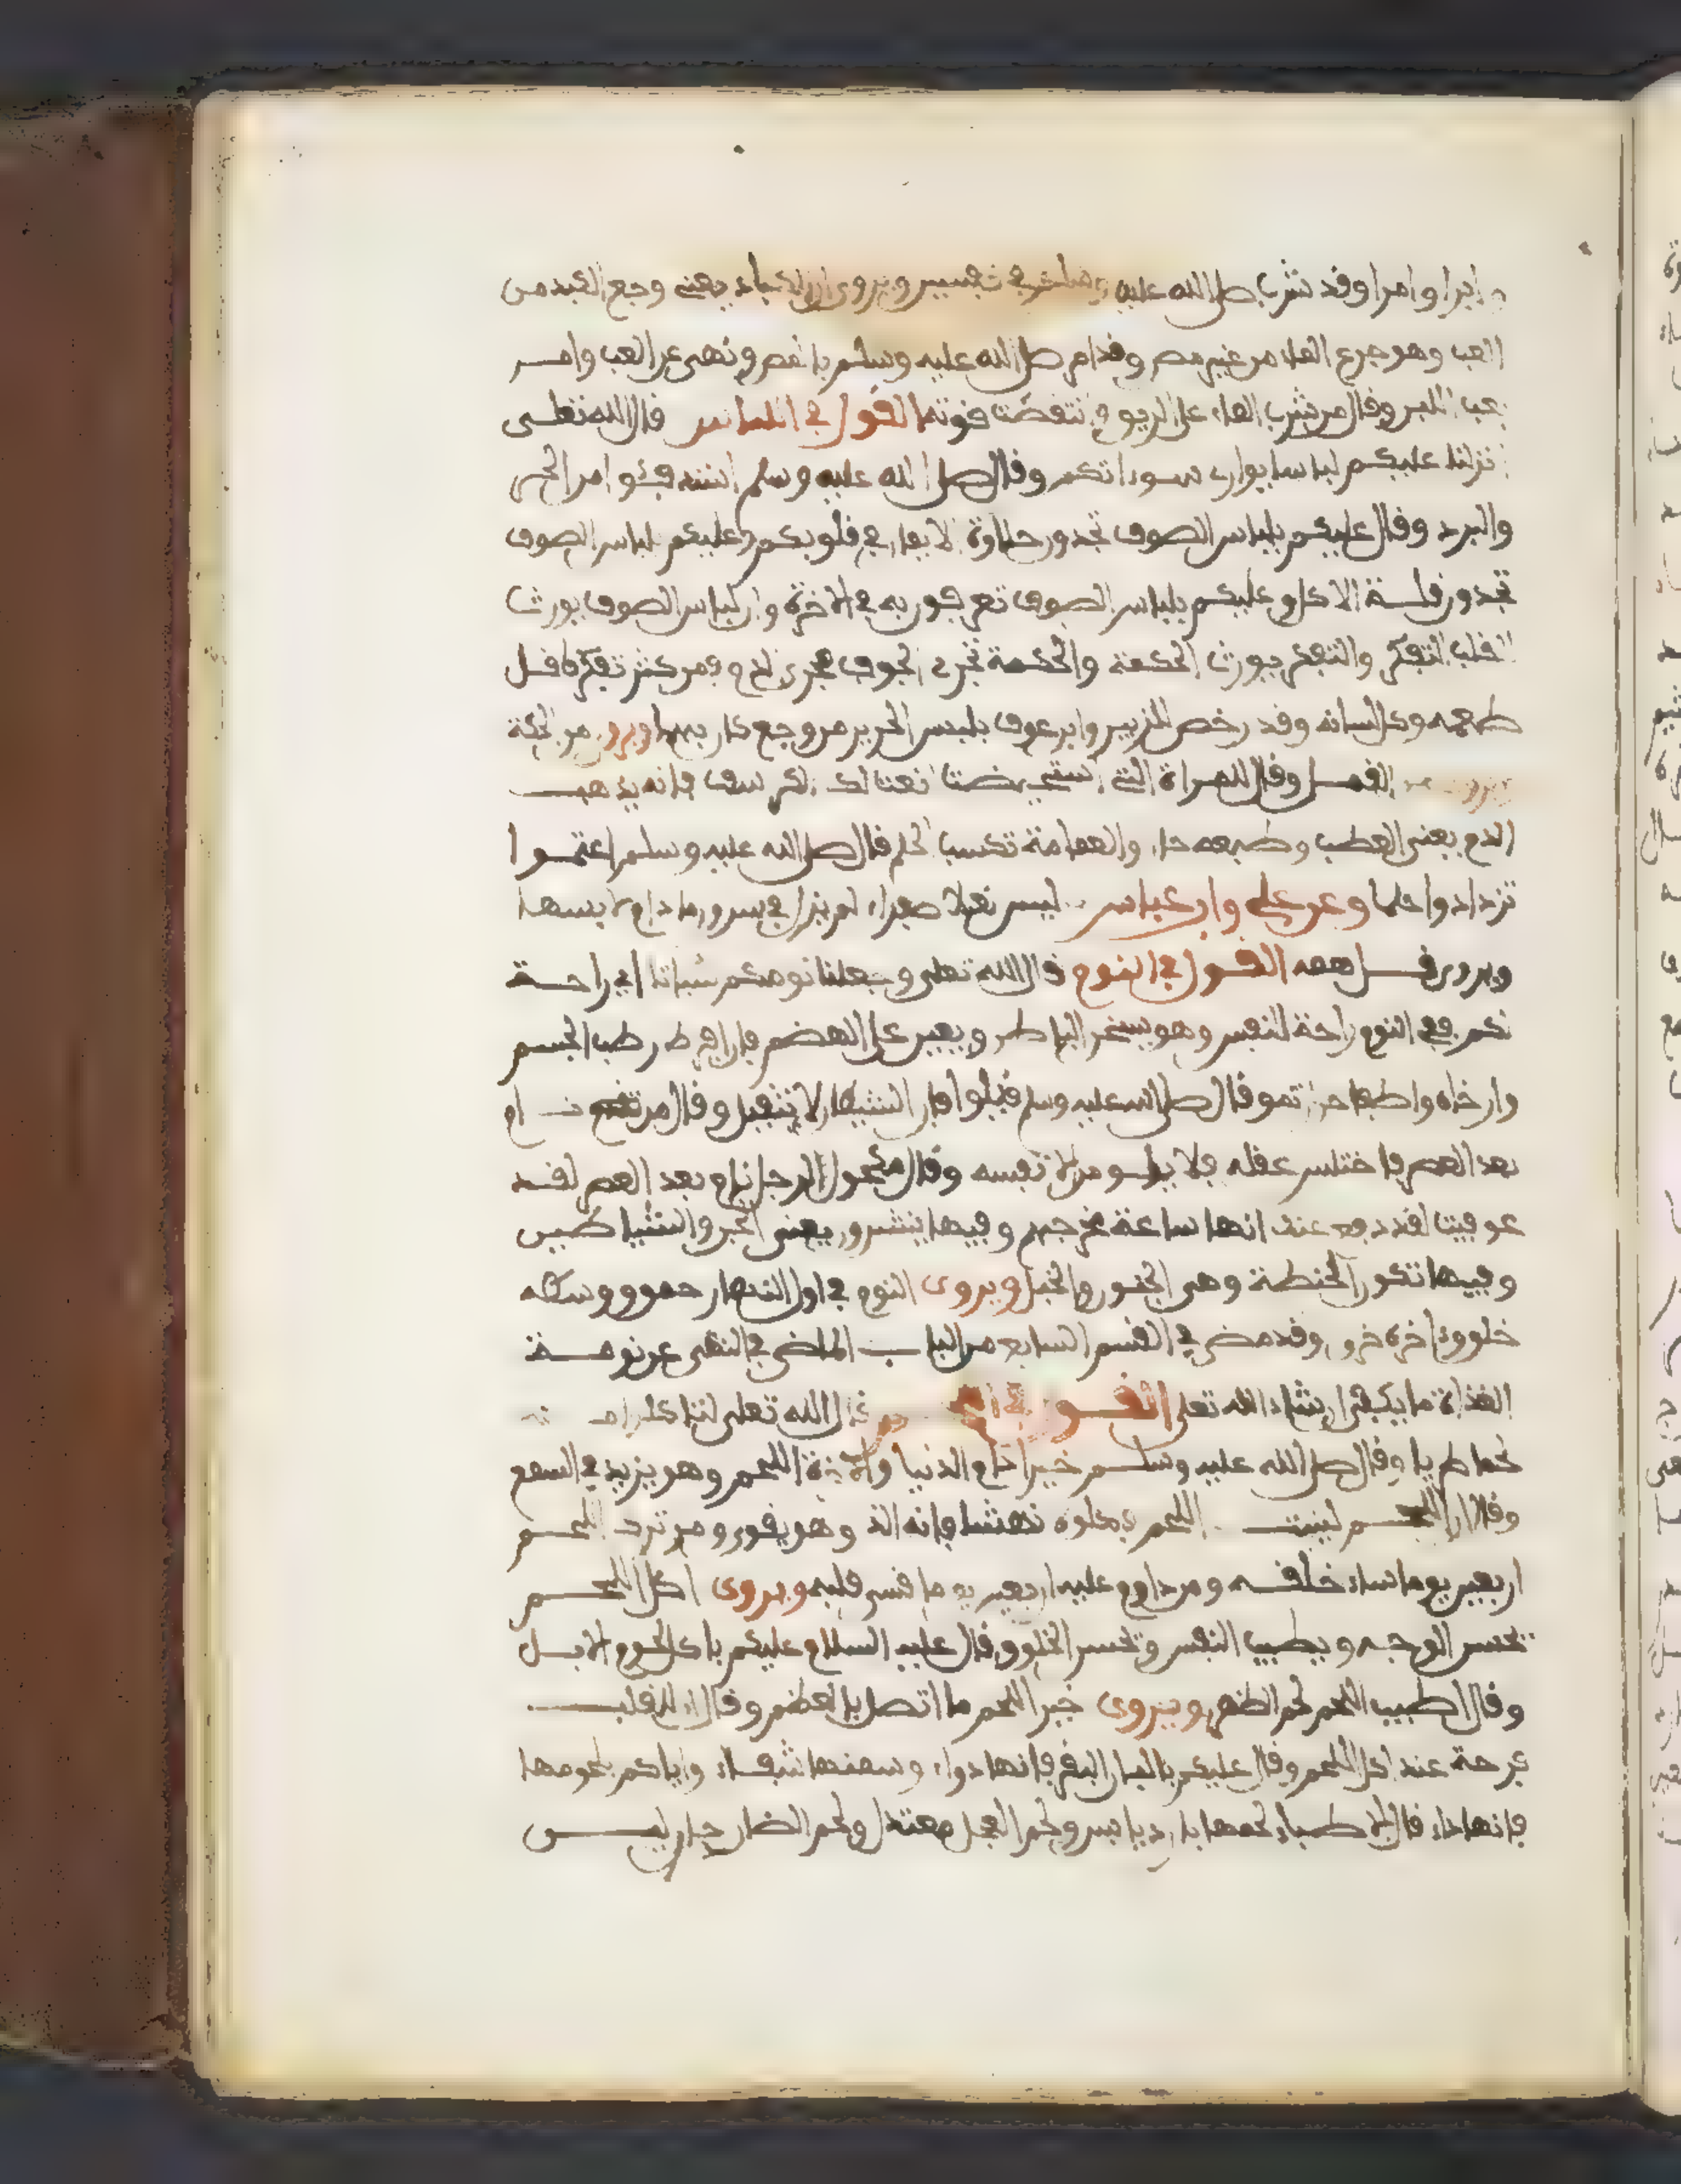 وابرا وامرا وقد شرب صلى الله عليه وسلم في نفسين ويروى ان الكباد يعني وجع الكبد من
العب وهو جرع الماء من غير مص وقد امر صلى الله عليه وسلم بالمص ونهى عن العب وامر
بعب اللبن وقال من شرب الماء على الريق انتقضت قوته القول في الملابس قال الله تعلى
انزلنا عليكم لباسا يواري سوءاتكم وقال صلى الله عليه وسلم استدفئوا من الحر
والبرد وقال عليكم بلباس الصوف تجدون حلاوة الايمان في قلوبكم وعليكم بلباس الصوف
تجدون قلة الاكل وعليكم بلباس الصوف تعرفون به في الاخرة وان لباس الصوف يورث
القلب التفكر والتفكر يورث الحكمة والحكمة تجري في الجوف مجرى الدم فمن كثر تفكره قل
طعمه وكل لسانه وقد رخص للزبير وابن عوف بلبس الحرير من وجع كان بهما ويروى من الحكة
ويروى من القمل وقال للمراة التي استحيضت انعت لك الكرسف فانه يذهب
الدم يعني العطب وطبعه حار والعمامة تكسب الحلم قال صلى الله عليه وسلم اعتموا
تزدادوا حلما وعن علي وابن عباس لبس نعلا صفراء لم يزل في سرور ما دام لابسها
ويروى قل همه القول في النوم قال الله تعلى وجعلنا نومكم سباتا اي راحة
لكم ففي النوم راحة للنفس وهو يسخن الباطن ويعين على الهضم فان افرط رطب الجسم
وارخاه واطفا حرارته وقال صلى الله عليه وسلم قيلوا فان الشيطان لا يقيل وقال من نام
بعد العصر فاختلس عقله فلا يلومن الا نفسه وقال مكحول الرجل نام بعد العصر لقد
عوفيت لقد دفع عنك انها ساعة مخرجهم وفيها ينتشرون يعني الجن والشياطين
وفيها تكون الخطفة وهي الجنون والخبل ويروى النوم في اول النهار حمق ووسطه
خلق وءاخره خرق وقد مضى في القسم السابع من الباب الماضي في النهي عن نومة
الغداة ما يكفي ان شاء الله تعلى القول في اللحم قال الله تعلى لتاكلوا منه
لحما طريا وقال صلى الله عليه وسلم خير ادام الدنيا والاخرة اللحم وهو يزيد في السمع
وقال ان اللحم لينبت اللحم فكلوه نهشا فانه الذ وهو يقوي ومن ترك اللحم
اربعين يوما ساء خلقه ومن داوم عليه اربعين يوما قسى قلبه ويروى اكل اللحم
يحسن الوجه ويطيب النفس ويحسن الخلق وقال عليه السلام عليكم باكل لحوم الابل
وقال اطيب اللحم لحم الظهر ويروى خير اللحم ما اتصل بالعظم وقال ان للقلب
فرحة عند اكل اللحم وقال عليكم بالبان البقر فانها دواء وسمنها شفاء واياكم ولحومها
فانها داء قال الاطباء لحمها بارد يابس ولحم العجل معتدل ولحم الضان حار لين